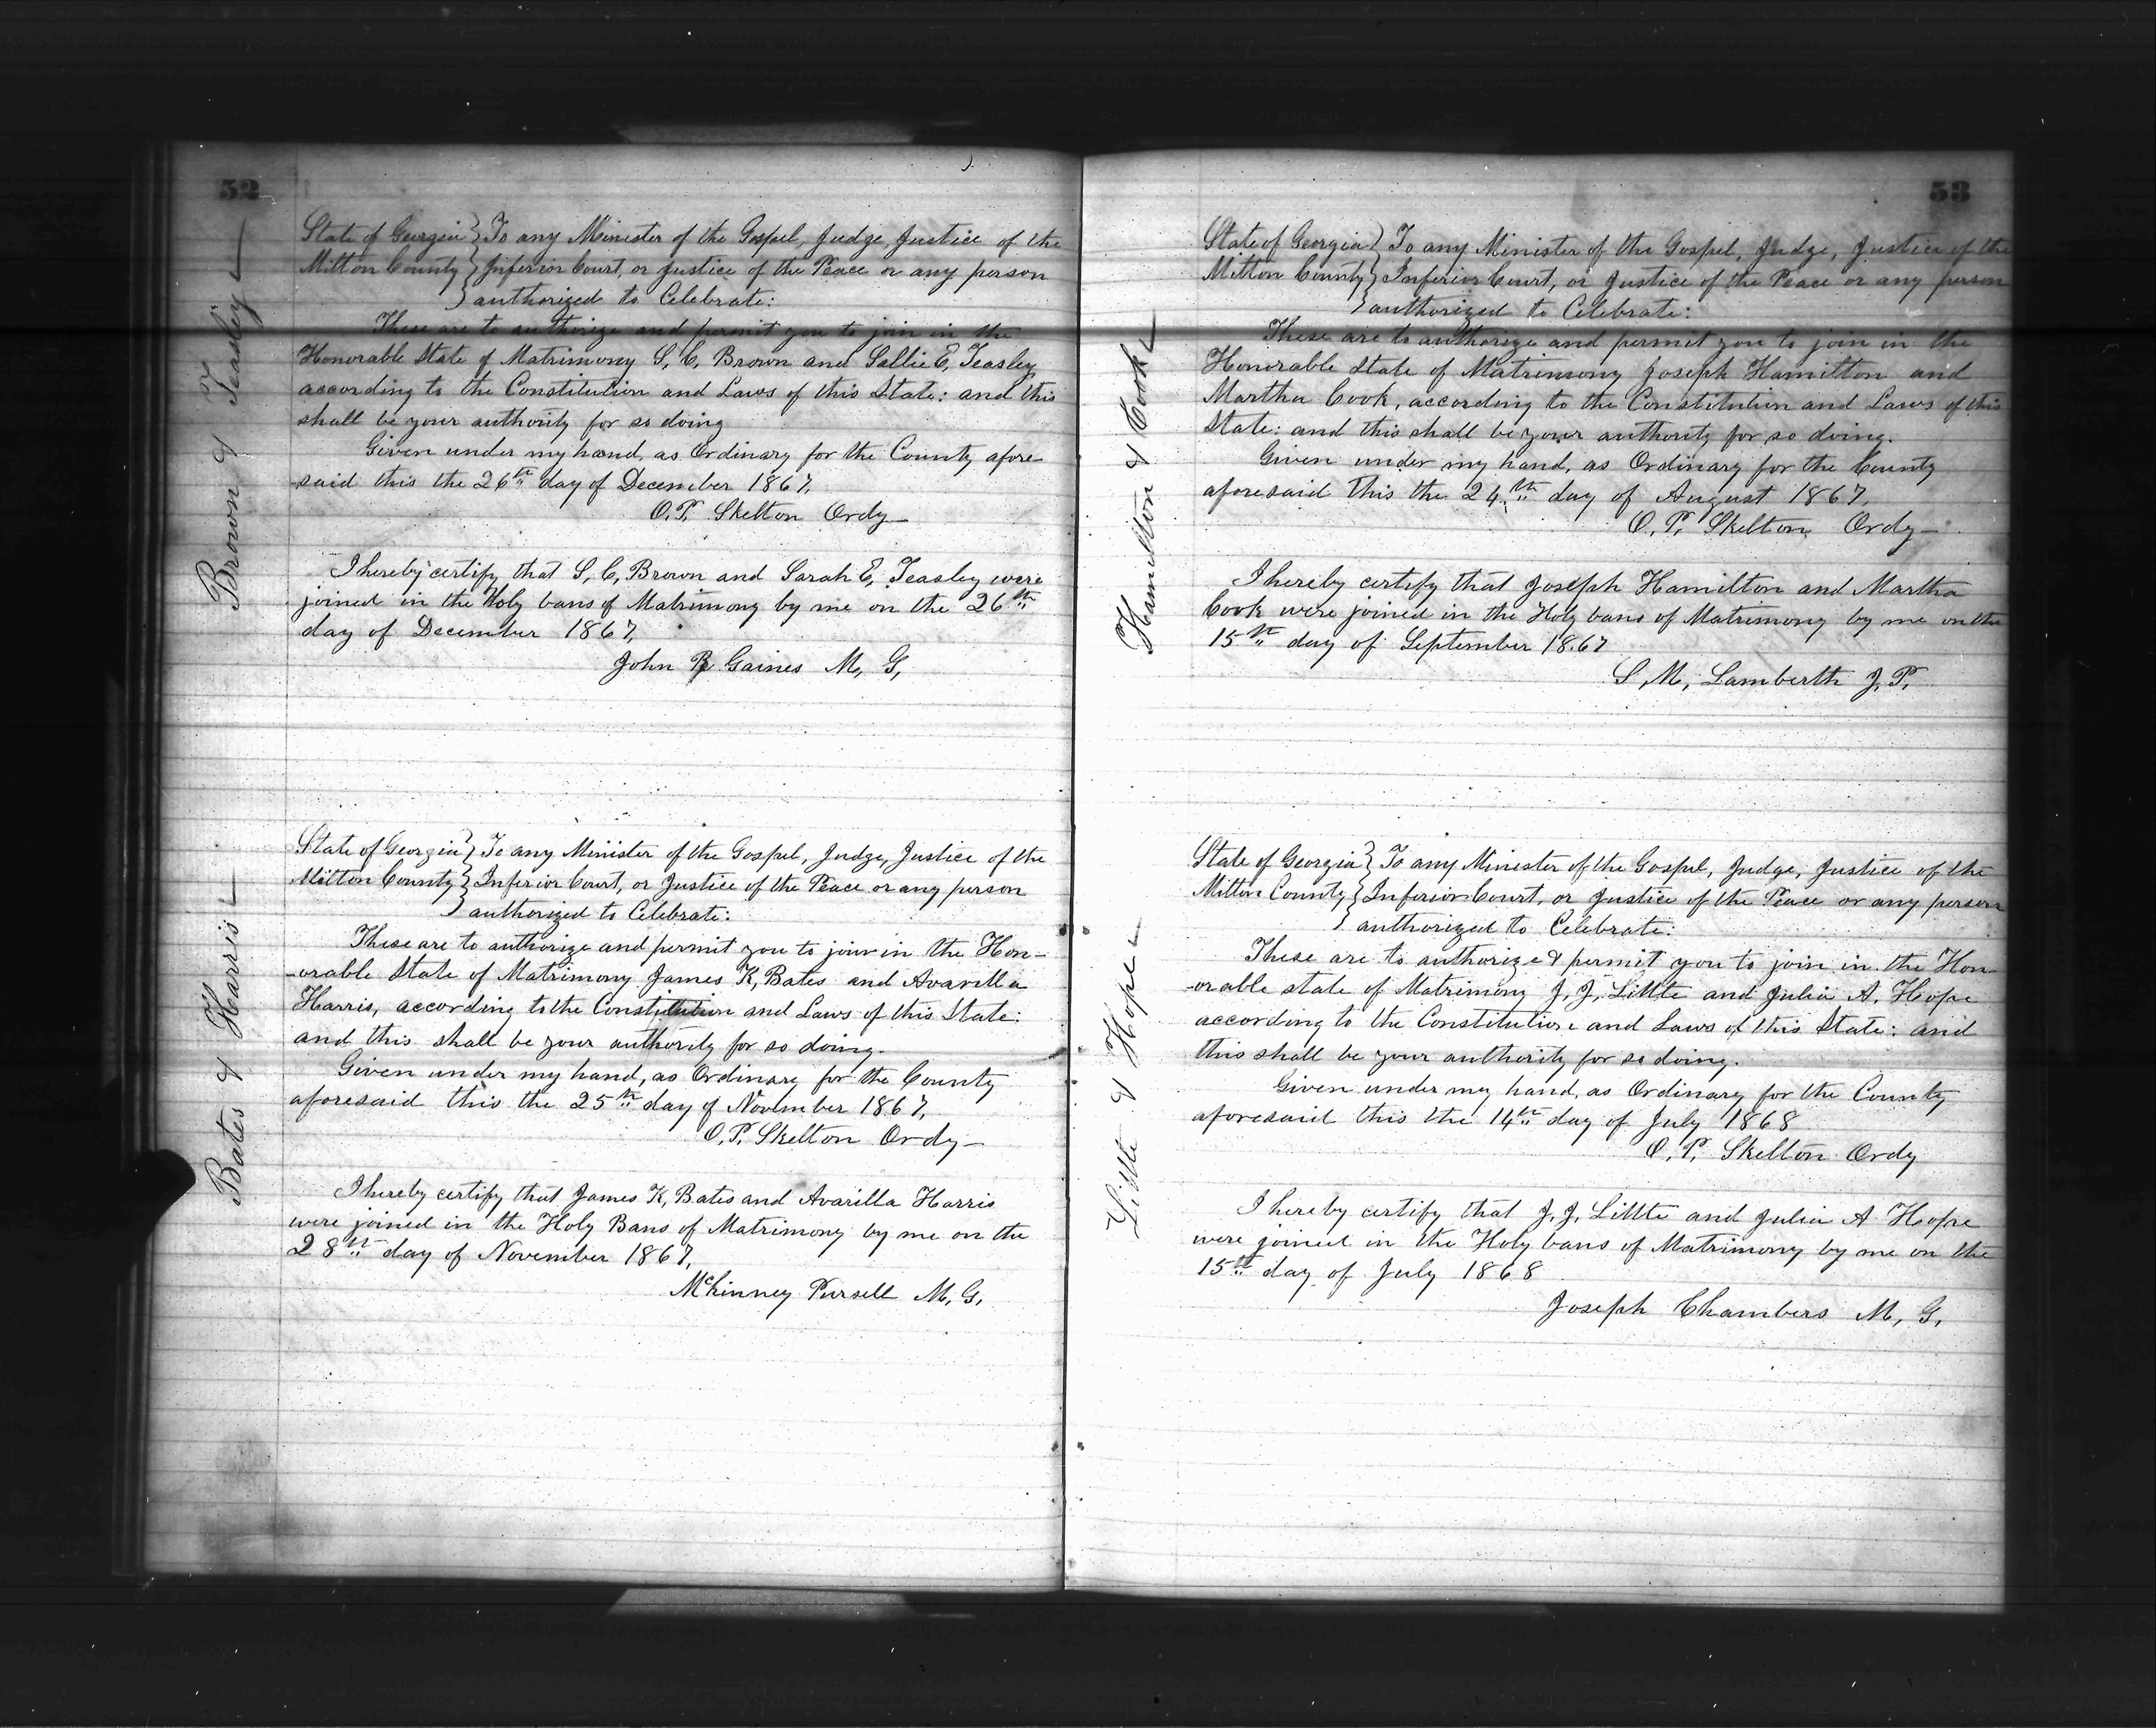 52
Brown & Teasley
State of Georgia } To any Minister of the Gospel, Judge, Justice of the
Milton County } Inferior Court, or Justice of the Peace or any person
} authorized to Celebrate:
These are to authorize and permit you to join in the
Honorable State of Matrimony S, C, Brown and Sallie E, Teasley,
according to the Constitution and Laws of this State: and this
shall be your authority for so doing
Given under my hand, as Ordinary for the County afore-
-said this the 26th day of December 1867,
O.P. Skelton Ordy
I hereby certify that S, C, Brown and Sarah E, Teasley were
joined in the Holy bans of Matrimony by me on the 26th
day of December 1867,
John R Gaines M, G,
Bates & Harris
State of Georgia } To any Minister of the Gospel, Judge, Justice of the
Milton County } Inferior Court, or Justice of the Peace or any person
} authorized to Celebrate:
These are to authorize and permit you to join in the Hon-
-orable State of Matrimony James K, Bates and Avarilla
Harris, according to the Constitution and Laws of this State:
and this shall be your authority for so doing.
Given under my hand, as Ordinary for the County
aforesaid this the 25th day of November 1867,
O.P. Skelton Ordy
I hereby certify that James K, Bates and Avarilla Harris
were joined in the Holy Bans of Matrimony by me on the
28th day of November 1867,
McKinney Pursell M, G,
53
Hamilton & Cook
State of Georgia } To any Minister of the Gospel, Judge, Justice of the
Milton County } Inferior Court, or Justice of the Peace or any person
} authorized to Celebrate:
These are to authorize and permit you to join in the
Honorable State of Matrimony Joseph Hamilton and
Martha Cook, according to the Constitution and Laws of this
State: and this shall be your authority for so doing.
Given under my hand, as Ordinary for the County
aforesaid this the 24th day of August 1867.
O, P, Skelton, Ordy
I hereby certify that Joseph Hamilton and Martha
Cook were joined in the Holy bans of Matrimony by me on the
15th day of September 1867
S, M, Lamberth J, P,
Little & Hope
State of Georgia } To any Minister of the Gospel, Judge, Justice of the
Milton County } Inferior Court, or Justice of the Peace or any person
} authorized to Celebrate:
These are to authorize & permit you to join in the Hon-
-orable state of Matrimony J, J, Little and Julia A. Hope
according to the Constitution and Laws of this State: and
this shall be your authority for so doing.
Given under my hand, as Ordinary for the County
aforesaid this the 14th day of July 1868
O, P, Skelton Ordy
I hereby certify that J, J, Little and Julia A Hope
were joined in the Holy bans of Matrimony by me on the
15th day of July 1868
Joseph Chambers M, G,